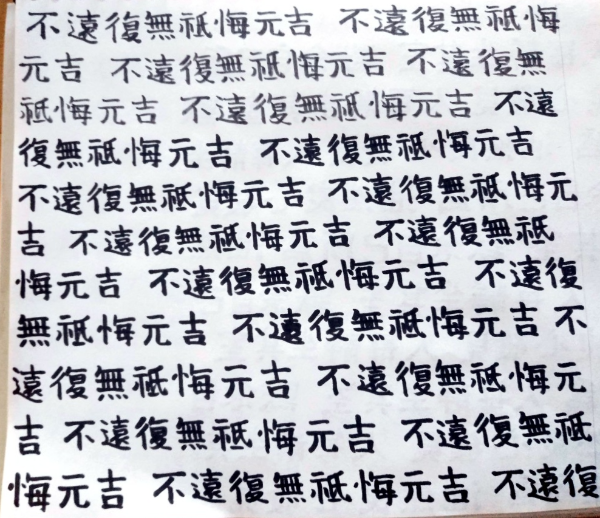 不遠復無祇悔元吉 不遠復無祇悔
元吉 不遠復無祇悔元吉 不遠復無
祇悔元吉 不遠復無祇悔元吉 不遠
復無祇悔元吉 不遠復無祇悔元吉
不遠復無祇悔元吉 不遠復無祇悔元
吉 不遠復無祇悔元吉 不遠復無祇
悔元吉 不遠復無祇悔元吉 不遠復
無祇悔元吉 不遠復無祇悔元吉 不
遠復無祇悔元吉 不遠復無祇悔元
吉 不遠復無祇悔元吉 不遠復無祇
悔元吉 不遠復無祇悔元吉 不遠復